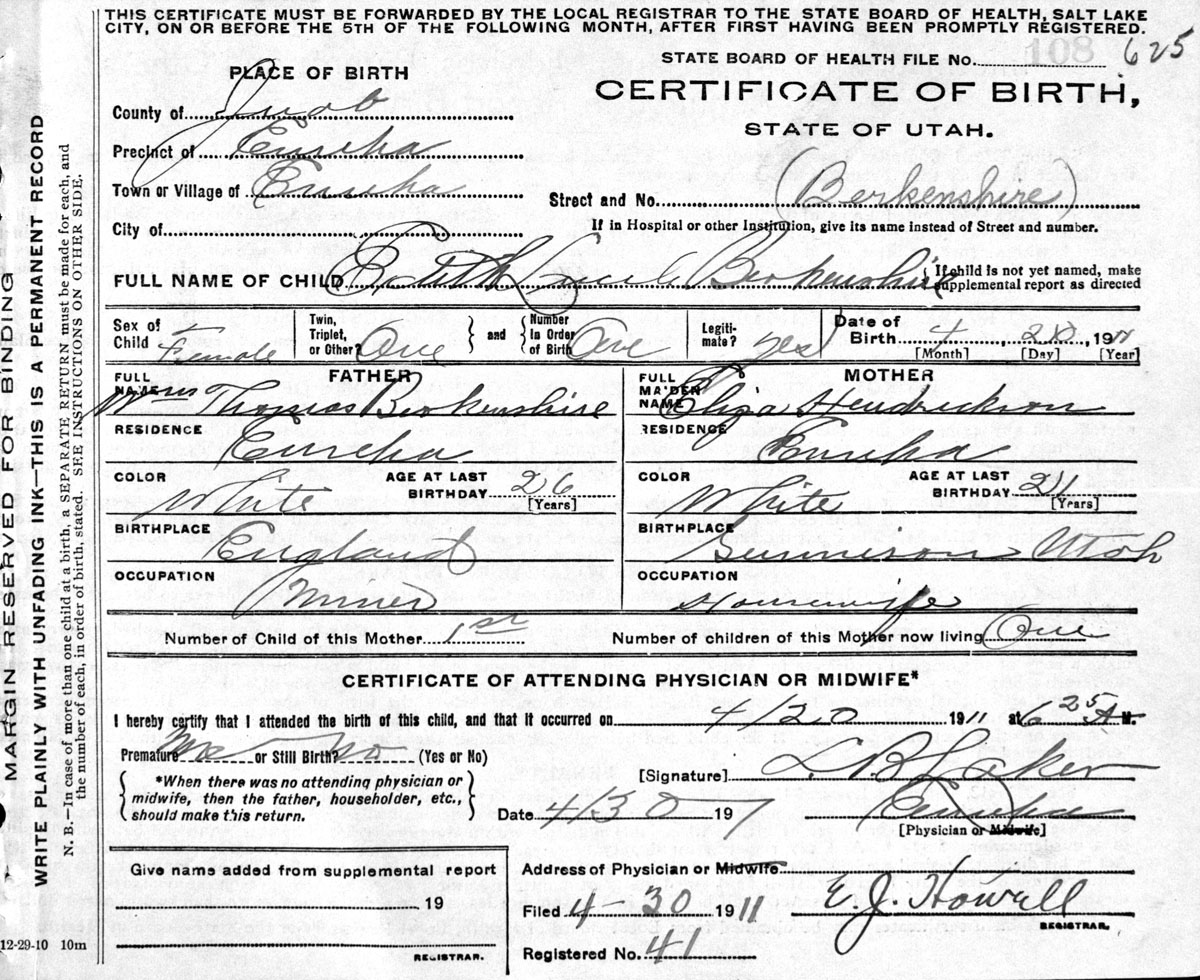 THIS CERTIFICATE MUST BE FORWARDED BY THE LOCAL REGISTRAR TO THE STATE BOARD OF HEALTH, SALT LAKE
CITY, ON OR BEFORE THE 5TH OF THE FOLLOWING MONTH, AFTER FIRST HAVING BEEN PROMPTLY REGISTERED.
108
625
STATE BOARD OF HEALTH FILE No.
PLACE OF BIRTH
CERTIFICATE OF BIRTH,
STATE OF UTAH.
County of Juab
Precinct of Eureka
Town or Village of Eureka
City of
Street and No. (Berkenshire)
If in Hospital or other Institution, give its name instead of Street and number.
FULL NAME OF CHILD Edith Berkenshire
If child is not yet named, make
supplemental report as directed
Sex of
Child Female
Twin,
Triplet,
or Other? One
and
Number
In Order
of Birth One
Legiti-
mate? yes
Date of
Birth 4, 20, 1911
[Month] [Day] [Year]
FATHER
FULL
NAME Wm Thomas Berkenshire
RESIDENCE
Eureka
COLOR
White
AGE AT LAST
BIRTHDAY 26
[Years]
BIRTHPLACE
England
OCCUPATION
Miner
MOTHER
FULL
MAIDEN
NAME Eliza Hendrickson
RESIDENCE
Eureka
COLOR
White
AGE AT LAST
BIRTHDAY 21
[Years]
BIRTHPLACE
Gunnison Utah
OCCUPATION
Housewife
Number of Child of this Mother 1st
Number of children of this Mother now living One
CERTIFICATE OF ATTENDING PHYSICIAN OR MIDWIFE*
I hereby certify that I attended the birth of this child, and that it occurred on 4/20 1911 at 6 25 A M.
Premature no or Still Birth? no (Yes or No)
*When there was no attending physician or
midwife, then the father, householder, etc.,
should make this return.
[Signature] L B Laker
Date 4/30 19
Eureka
[Physician or Midwife]
Give name added from supplemental report
19
REGISTRAR.
Address of Physician or Midwife
Filed 4-30 1911
E. J. Howell
REGISTRAR.
Registered No. 41
12-29-10 10m
MARGIN RESERVED FOR BINDING
WRITE PLAINLY WITH UNFADING INK—THIS IS A PERMANENT RECORD
N. B.—In case of more than one child at a birth, a SEPARATE RETURN must be made for each, and
the number of each, in order of birth, stated. SEE INSTRUCTIONS ON OTHER SIDE.